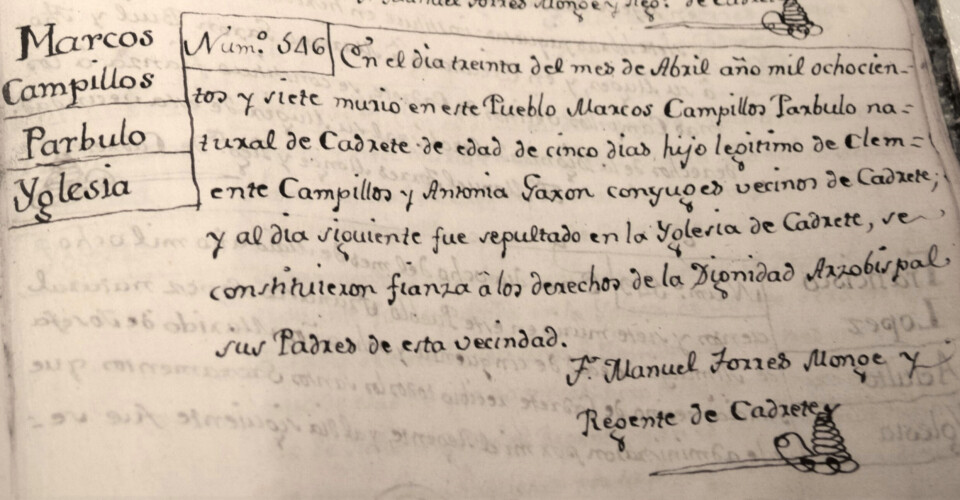 Marcos
Campillos
Parbulo
Yglesia
Num.º 546
En el dia treinta del mes de Abril año mil ochocien-
tos y siete murio en este Pueblo Marcos Campillos Parbulo na=
tural de Cadrete de edad de cinco dias hijo legitimo de Clem=
ente Campillos y Antonia Faxon conyuges vecinos de Cadrete;
y al dia siguiente fue sepultado en la Yglesia de Cadrete, se
constituieron fianza â los derechos de la Dignidad Arzobispal
sus Padres de esta vecindad.
Fr. Manuel Torres Monge y
Regente de Cadrete